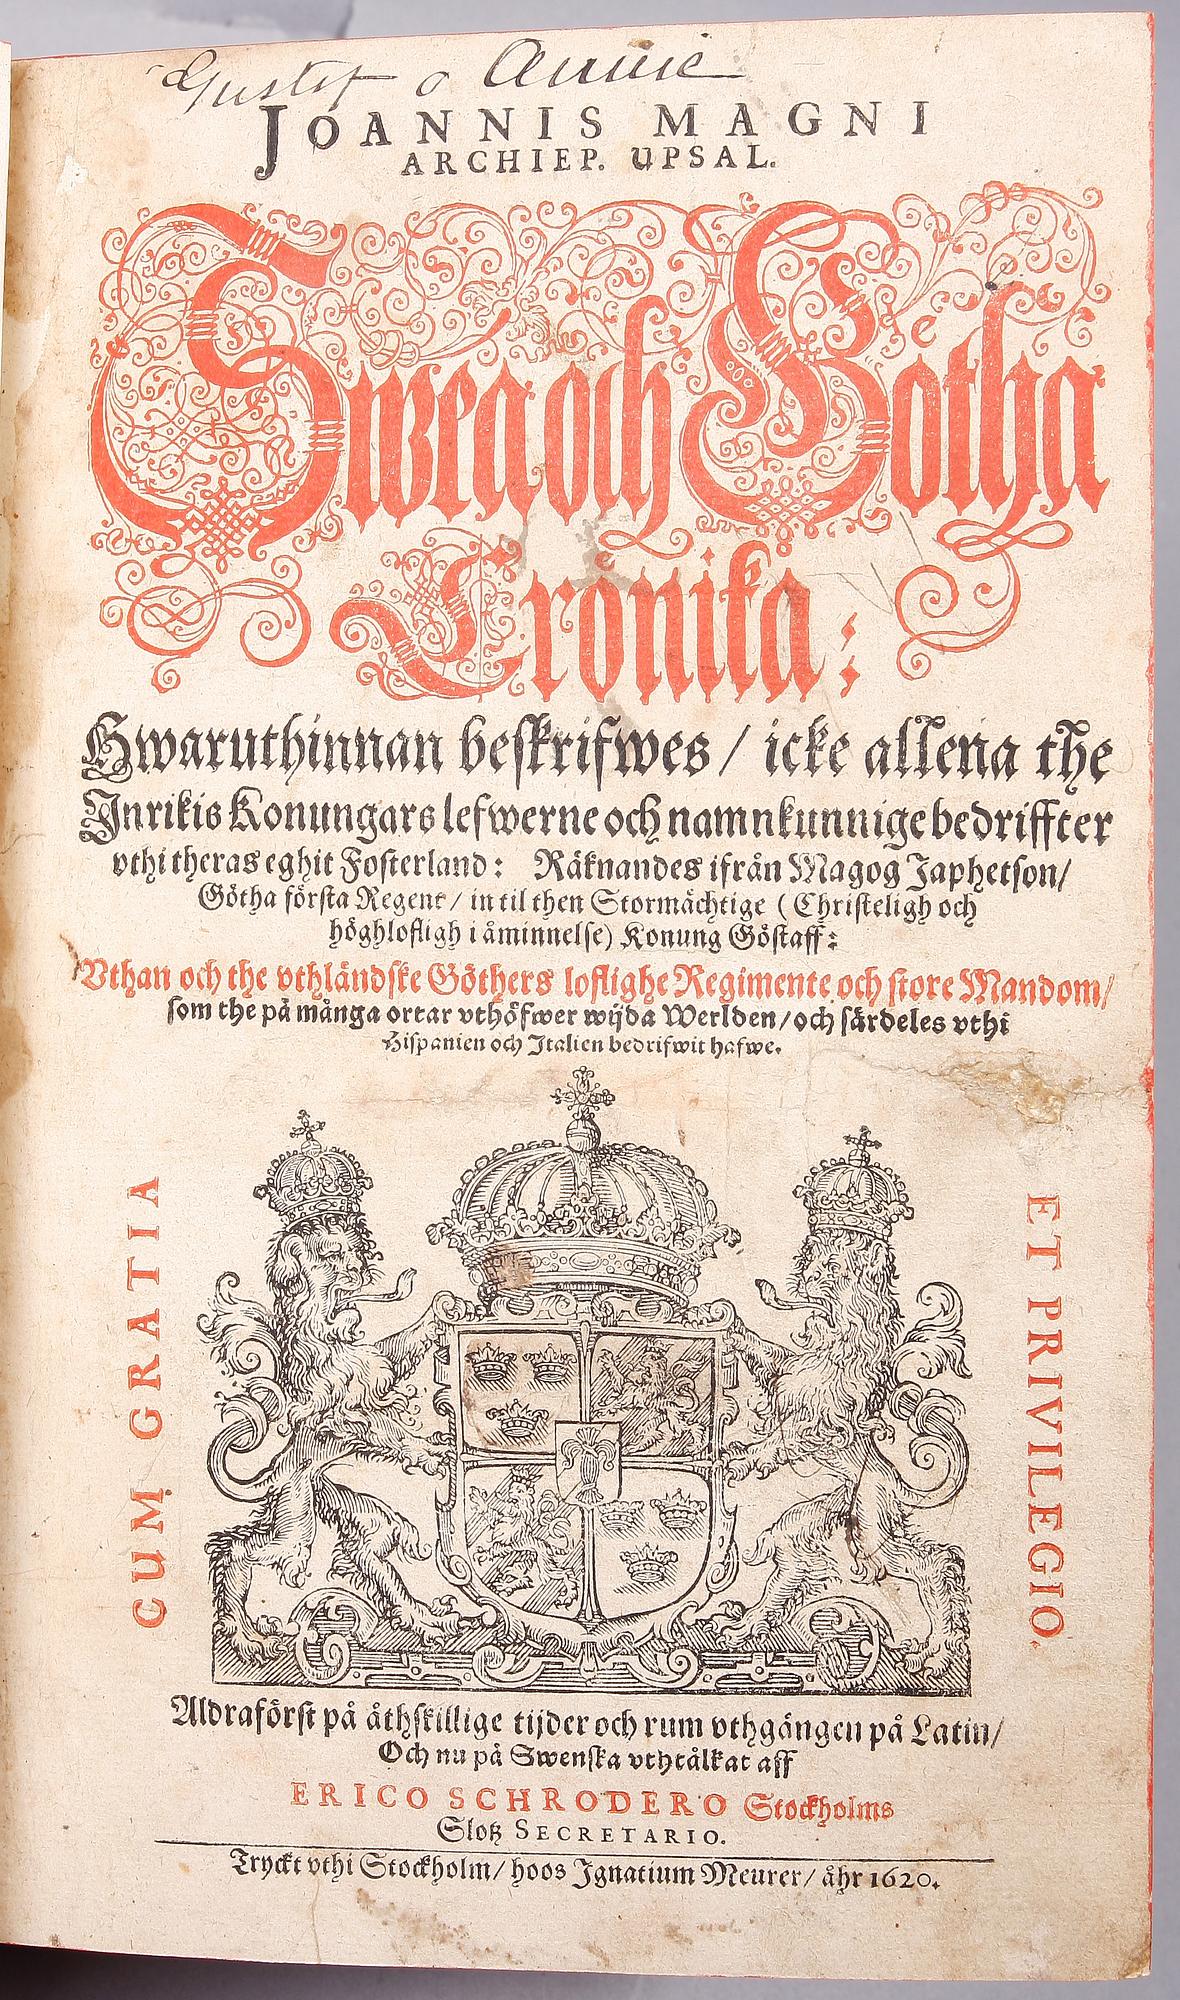 Gustaf o Annie
JOANNIS MAGNI
ARCHIEP. UPSAL.
Swea och Götha
Crönika:
Hwaruthinnan beskrifwes / icke allena the
Inrikis Konungars lefwerne och namnkunnige bedriffter
vthi theras eghit Fosterland: Räknandes ifrån Magog Japhetson/
Götha första Regent / in til then Stormächtige (Christeligh och
höghlofligh i åminnelse) Konung Göstaff:
Vthan och the vthländske Göthers loflighe Regimente och store Mandom/
som the på många ortar vthöfwer wijda Werlden/ och särdeles vthi
Hispanien och Italien bedrifwit hafwe.
CUM GRATIA
ET PRIVILEGIO.
Aldraförst på åthskillige tijder och rum vthgången på Latin/
Och nu på Swenska vthtålkat aff
ERICO SCHRODERO Stockholms
Slotz SECRETARIO.
Tryckt vthi Stockholm/ hoos Ignatium Meurer/ åhr 1620.